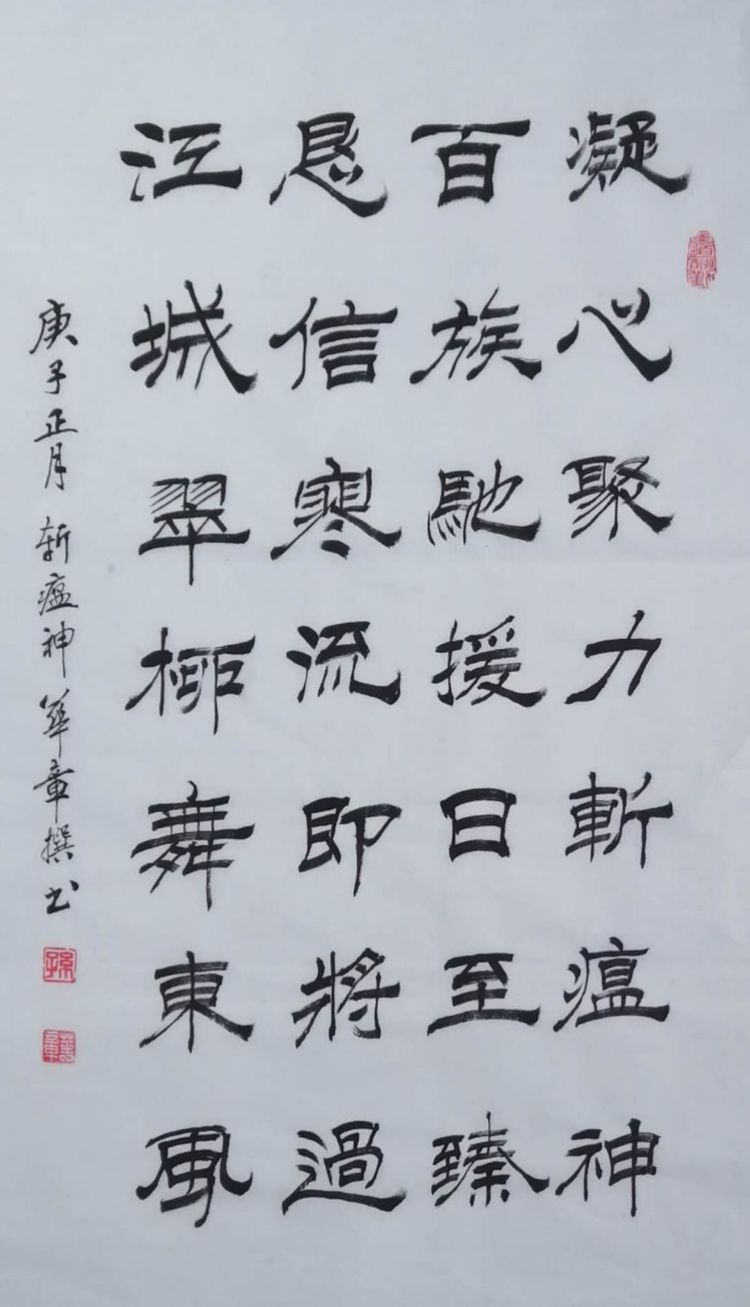 凝心聚力斬瘟神
百族馳援日至臻
恳信寒流即將過
江城翠柳舞東風
庚子正月斬瘟神華章撰书
孫
華章